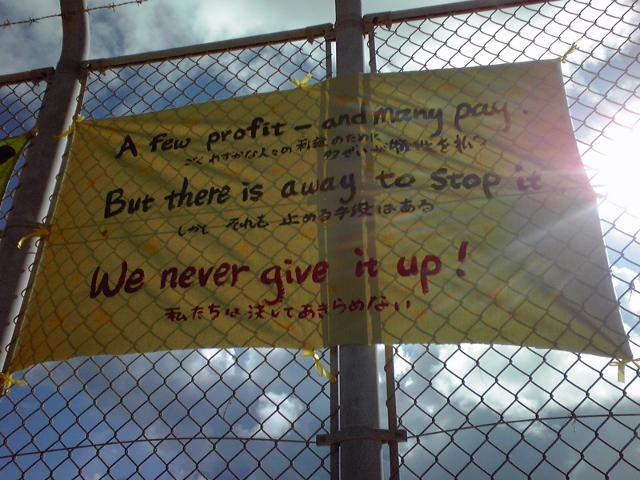 A few profit – and many pay.
ごくわずかな人々の利益のために 多ぜいが犠牲を払う
But there is away to stop it.
しかし それを止める手段はある
We never give it up!
私たちは決してあきらめない